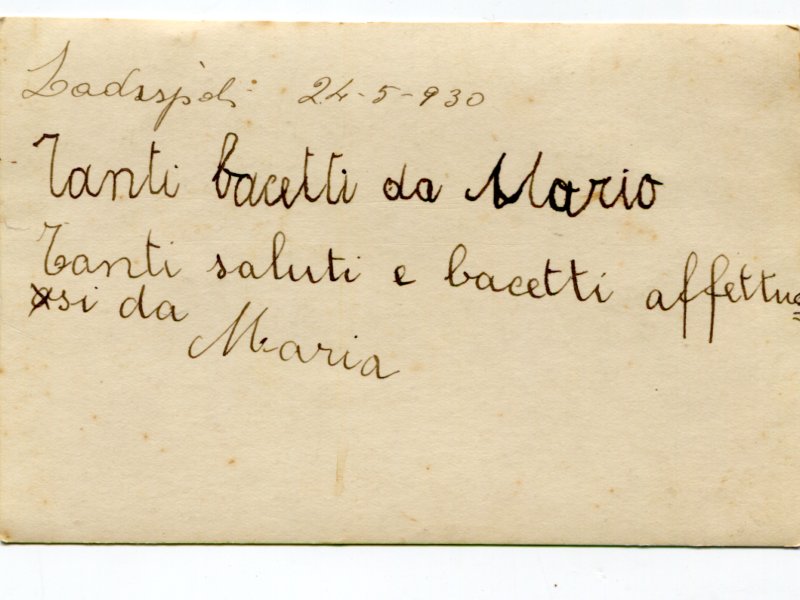 Ladispoli 24-5-930
Tanti bacetti da Mario
Tanti saluti e bacetti affettuo
si da
Maria